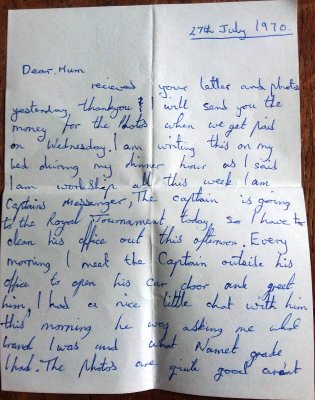 27th July 1970.
Dear, Mum
recieved your letter and photos
yesterday thankyou & I will send you the
money for the photos when we get paid
on Wednesday. I am writing this on my
bed during my dinner hour as I said
I am workshop all this week I am
Captains Messanger. The captain is going
to the Royal Tournament today, so I have to
clean his office out this afternoon. Every
morning I meet the Captain outside his
office to open his car door and greet
him, I had a nice little chat with him
this morning he was asking me what
trand I was and what Namet grade
I had. The photos are quite good arent